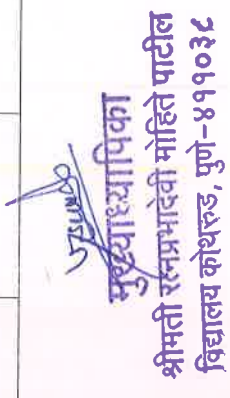 मुख्याध्यापिका
श्रीमती रत्नप्रभादेवी मोहिते पाटील
विद्यालय कोथरुड, पुणे-४११०३८